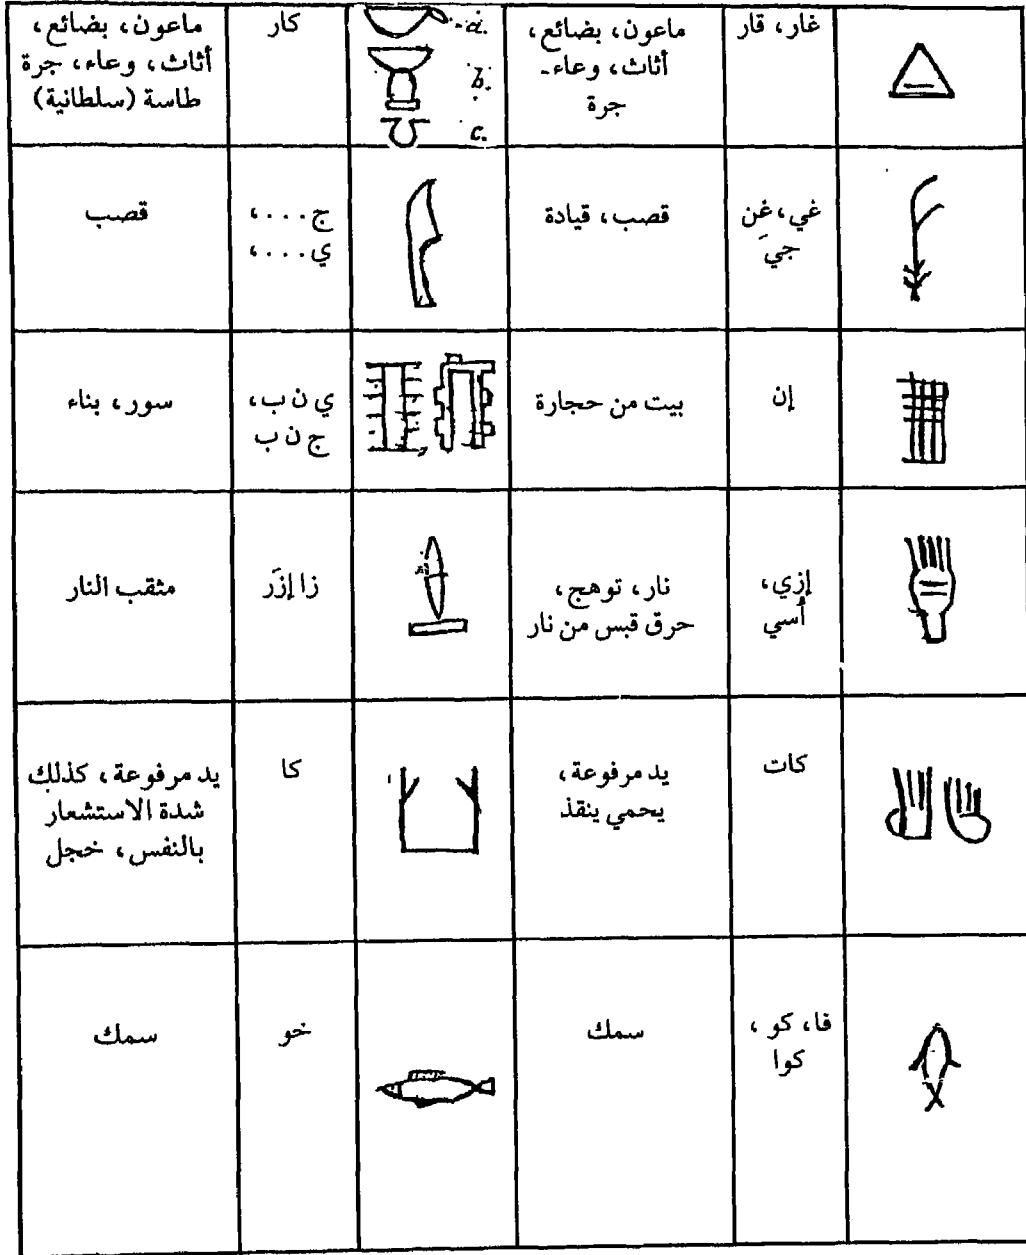 غار، قار
ماعون، بضائع،
أثاث، وعاء۔
جرة
a.
b.
c.
كار
ماعون، بضائع،
أثاث، وعاء، جرة
طاسة (سلطانية)
غي، غن
جيَ
قصب، قيادة
ج . . . ،
ي . . . ،
قصب
إن
بيت من حجارة
ي ن ب،
ج ن ب
سور، بناء
إزي،
أسي
نار، توهج،
حرق قبس من نار
زا إزَر
مثقب النار
كات
يد مرفوعة،
يحمي ينقذ
كا
يد مرفوعة، كذلك
شدة الاستشعار
بالنفس، خجل
فا، كو،
كوا
سمك
خو
سمك